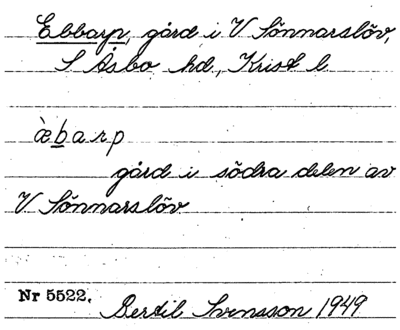 Ebbarp, gård i V Sönnarslöv,
S Åsbo hd, Krist l
æ̀barp
gård i södra delen av
V Sönnarslöv
Nr 5522. Bertil Svensson 1949